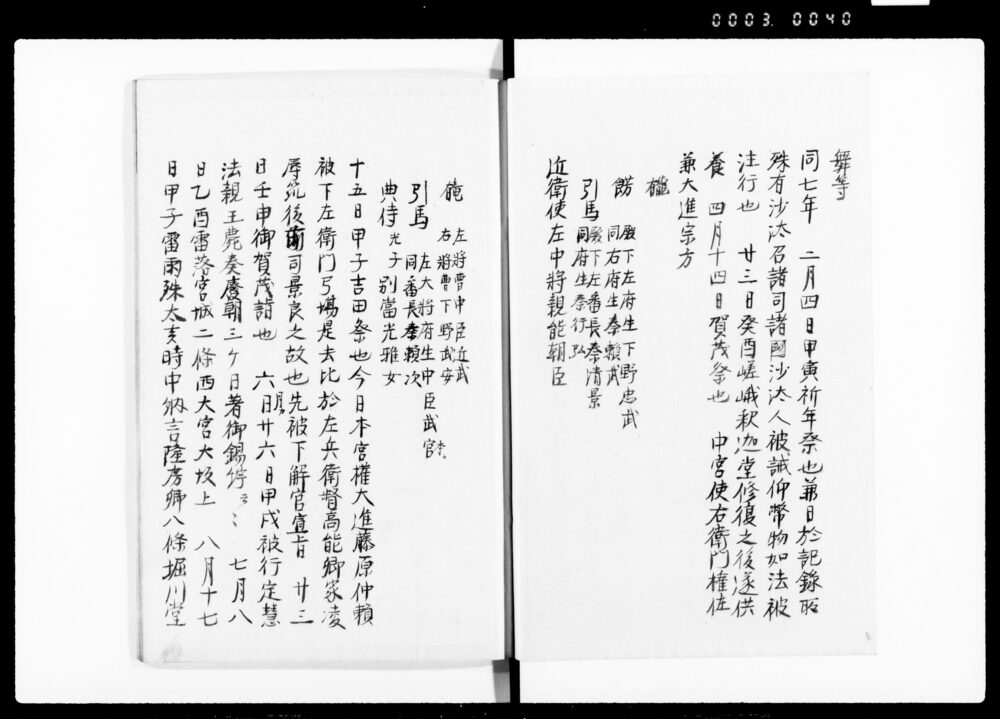 0003 0040
舞等
同七年 二月四日甲寅祈年祭也兼日於記録所
殊有沙汰召諸司諸國沙汰人被誡仰幣物如法被
注行也 廿三日癸酉嵯峨釈迦堂修復之後遂供
養 四月十四日賀茂祭也 中宮使右衛門権佐
兼大進宗方
櫳
餝 殿下左府生下野忠武
同右府生秦頼武
引馬 殿下左番長秦清景
同府生秦行弘
近衛使左中将親能朝臣
櫳 左将曹中臣近武
右将曹下野武安
引馬 左大将府生中臣武官
同番長秦頼次
典侍光子別當光雅女
十五日甲子吉田祭也今日本宮権大進藤原仲頼
被下左衛門弓場是去比於左兵衛督高能卿家凌
辱筑後前司景良之故也先被下解官宣旨 廿三
日壬申御賀茂詣也 六月廿六日甲戌被行定慧
法親王薨奏廢朝三ケ日著御錫紵云々 七月八
日乙酉雷落宮城二條西大宮大坂上 八月十七
日甲子雷雨殊太亥時中納言隆房卿八條堀川堂